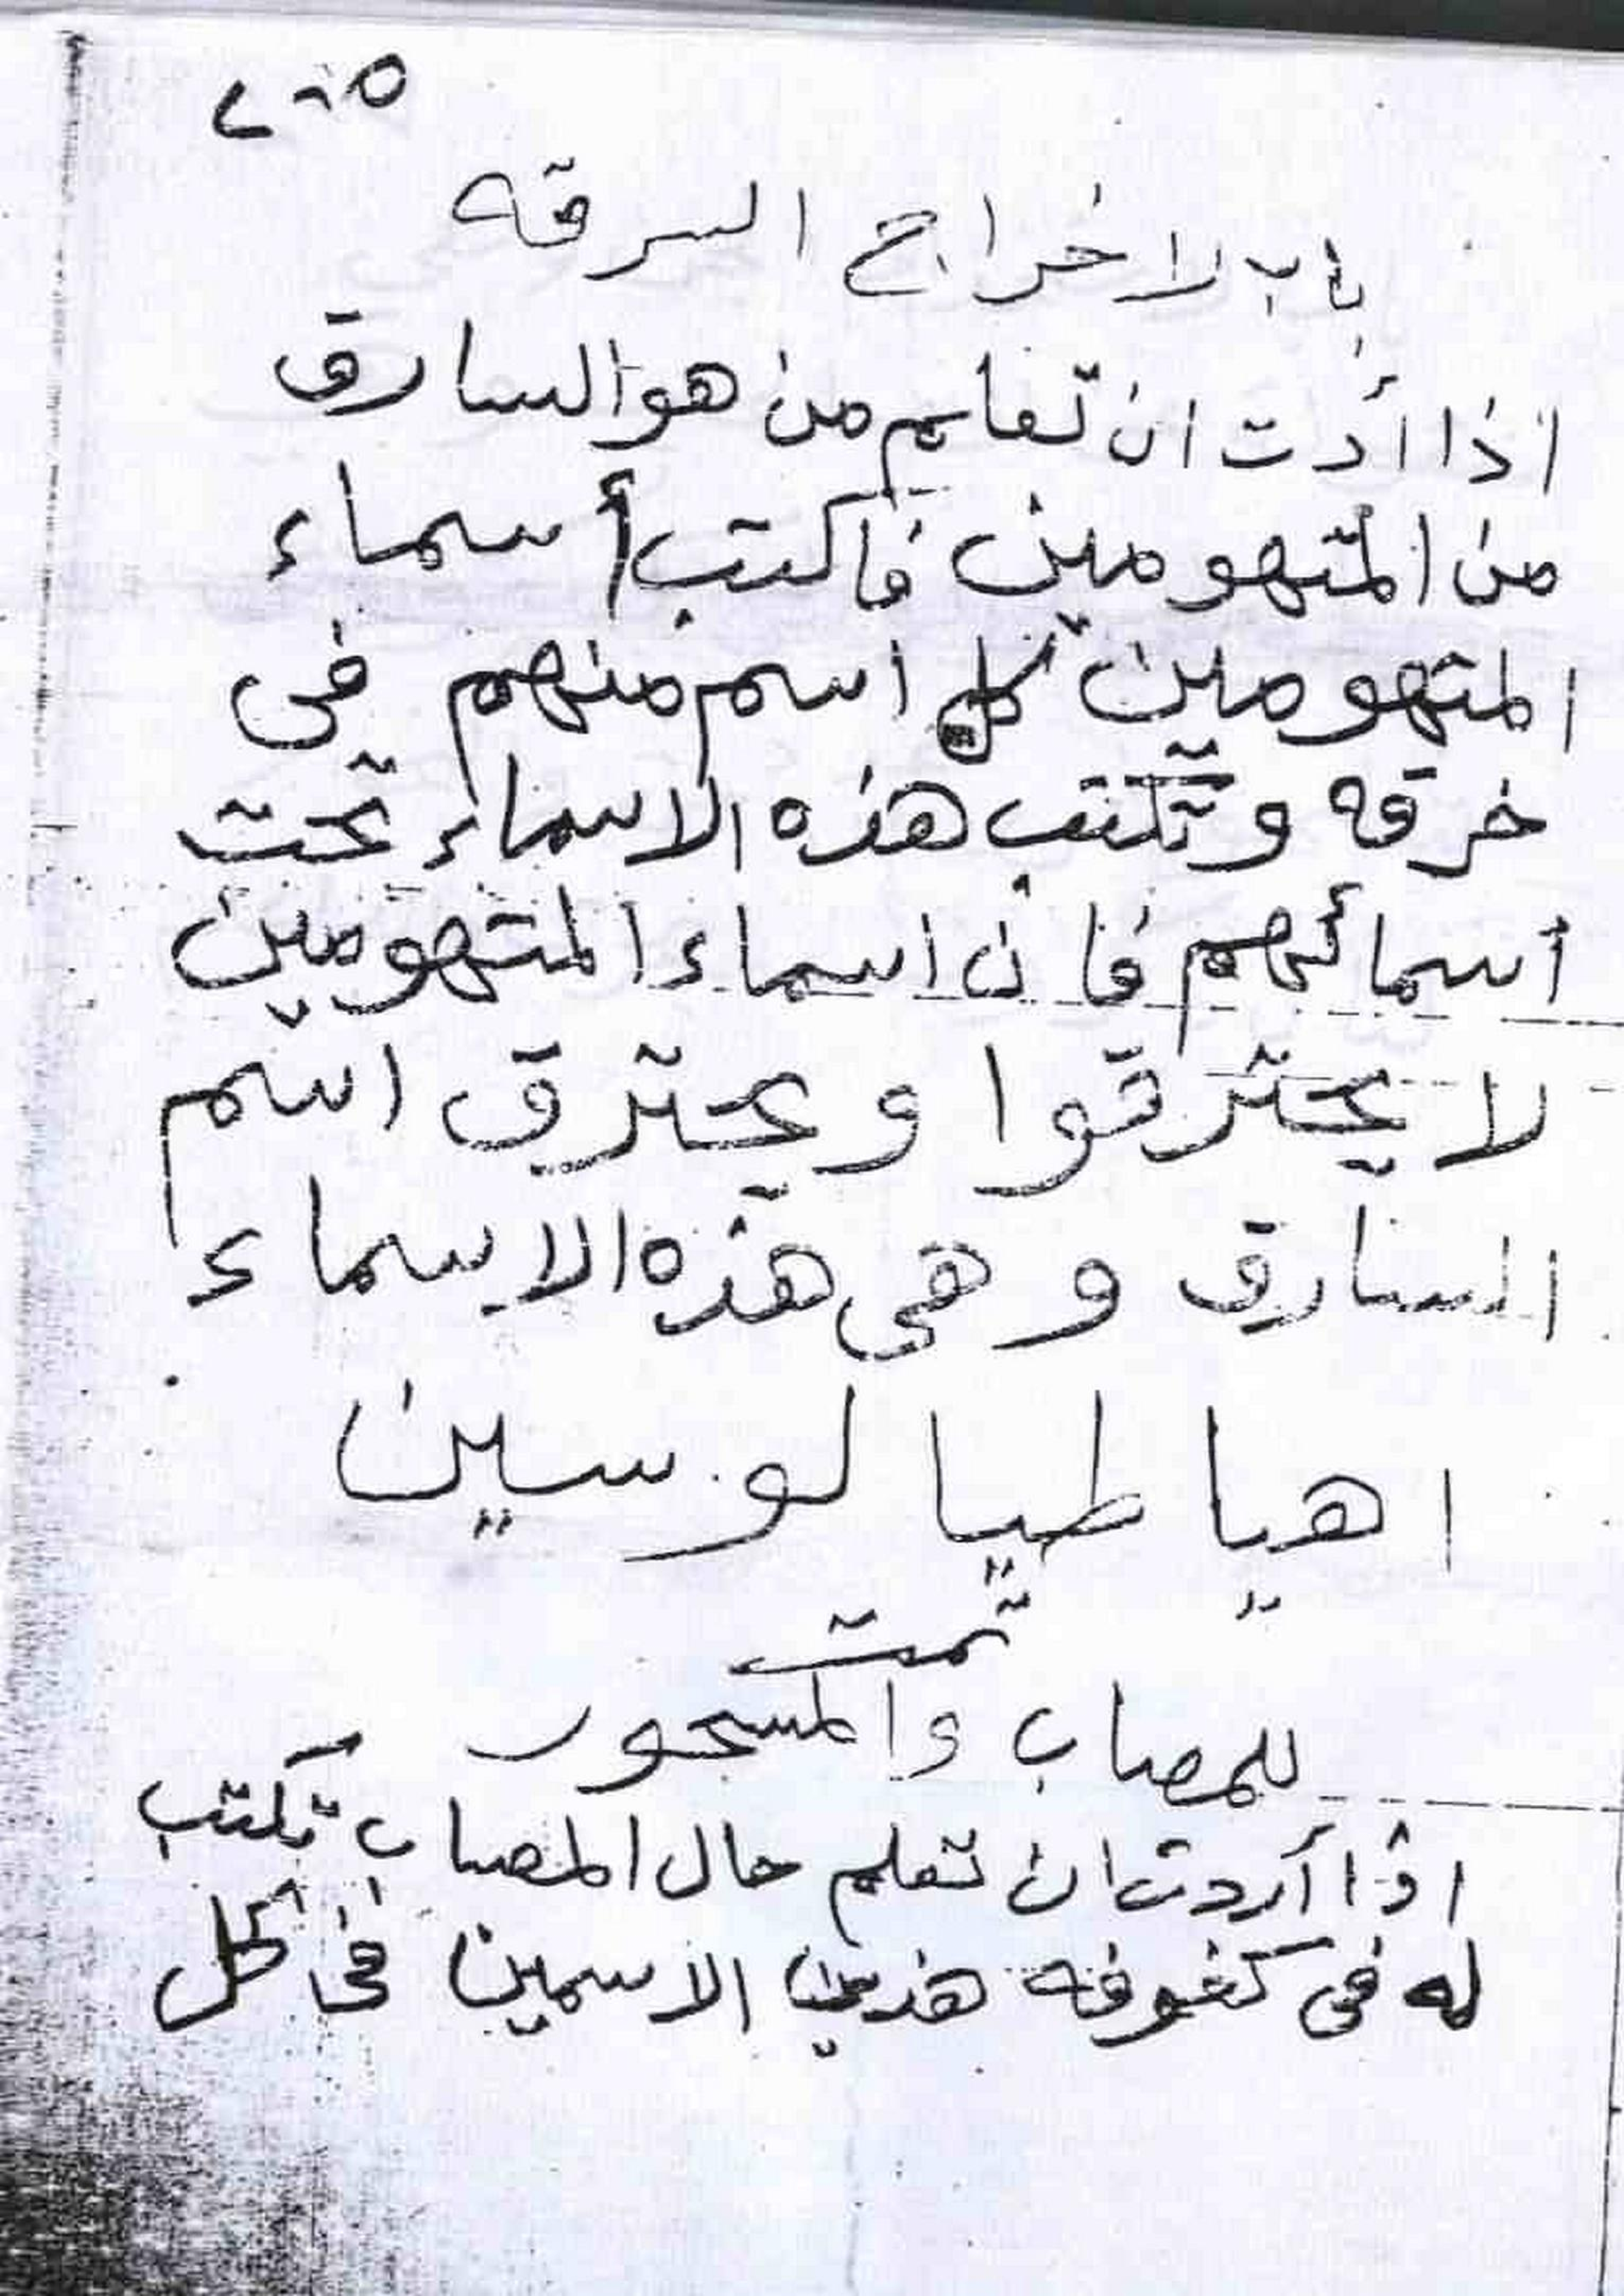 باب لاخراج السرقه
اذا أدت ان تعلم من هو السارق
من المتهومين فاكتب أسماء
المتهومين كل اسم منهم فى
خرقه وتكتب هذه الاسماء تحت
أسمائهم فان اسماء المتهومين
لا يحترقوا ويحترق اسم
السارق وهى هذه الاسماء
اهيا طيا لو سين
تمت
للمصاب والمسحور
اذا أردت ان تعلم حال المصاب تكتب
له فى كفوفه هذين الاسمين فى كل